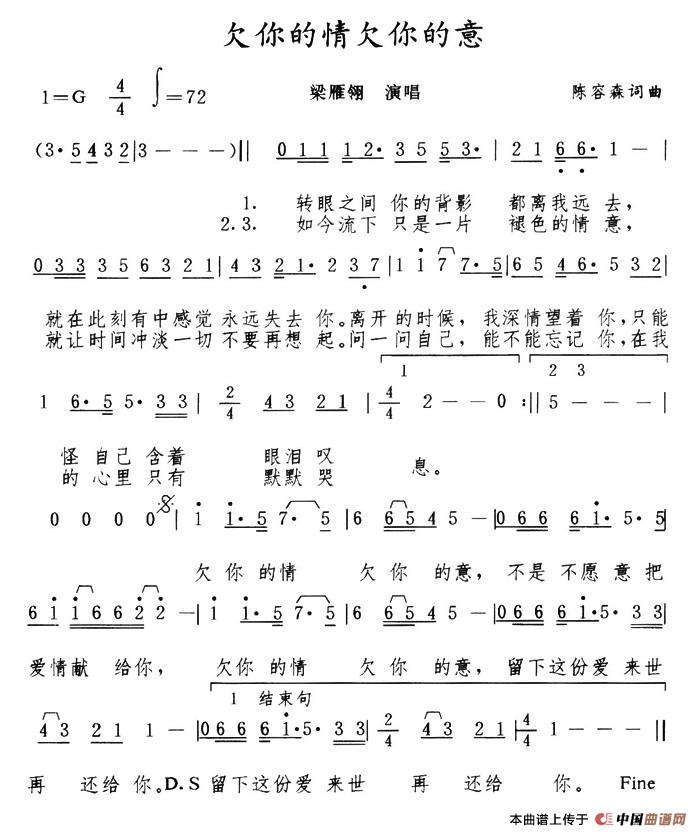 欠你的情欠你的意
1=G 4/4 ♩=72 梁雁翎 演唱 陈容森词曲
(3·5 432|3 - - -)|| 011 12·3 55 53·| 21 66·1 -|
1. 转眼之间 你的背影 都离我远 去,
2.3. 如今流下 只是一片 褪色的情 意,
033 35 63 21|43 21·2 37|1 17 77·5|65 46·5 32|
就在此刻有中感觉 永远失去 你。离开的时候, 我深情望着 你,只能
就让时间冲淡一切 不要再想 起。问一问自己, 能不能忘记 你,在我
1 2 3
1 6·5 5·33|2/4 43 21|4/4 2 - - 0:|| 5 - - -|
怪 自己 含着 眼泪 叹 息。
的 心里 只有 默默 哭
0 0 0 0| 1 1·5 7·5|6 6545 -|066 61·5·5|
欠 你 的情 欠 你 的意, 不是 不愿 意 把
61 16622 -|1 1·5 7·5|6 6545 -|066 61·5·33|
爱情献 给你, 欠你 的情 欠 你 的意, 留下这份爱 来世
1 结束句
43 21 1 -|066 61·5·33|2/4 43 21|4/4 1 - - -||
再 还给 你。D.S 留下这份爱 来世 再 还给 你。 Fine
本曲谱上传于 中国曲谱网